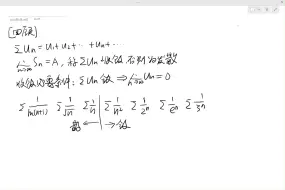 [回顾]
ΣUn = U1 + U2 + ... + Un + ...
lim n→∞ Sn = A, 称ΣUn收敛 否则为发散
收敛必要条件: ΣUn 收敛 ⇒ lim n→∞ Un = 0
Σ 1/ln(n+1) Σ 1/√n Σ 1/n | Σ 1/n² Σ 1/2ⁿ Σ 1/eⁿ Σ 1/3ⁿ
散 ← → 敛